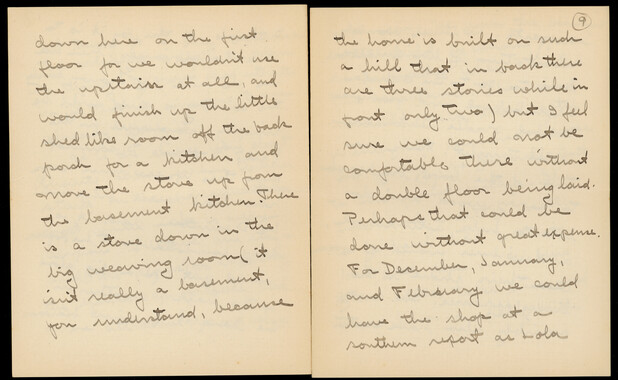 down here on the first
floor for we wouldn't use
the upstairs at all, and
would finish up the little
shed like room off the back
porch for a kitchen and
move the stove up from
the basement kitchen. There
is a stove down in the
big weaving room (it
isn't really a basement,
you understand, because
9
the home is built on such
a hill that in back there
are three stories while in
front only two) but I feel
sure we could not be
comfortable there without
a double floor being laid.
Perhaps that could be
done without great expense.
For December, January,
and February we could
have the shop at a
southern resort as Lola